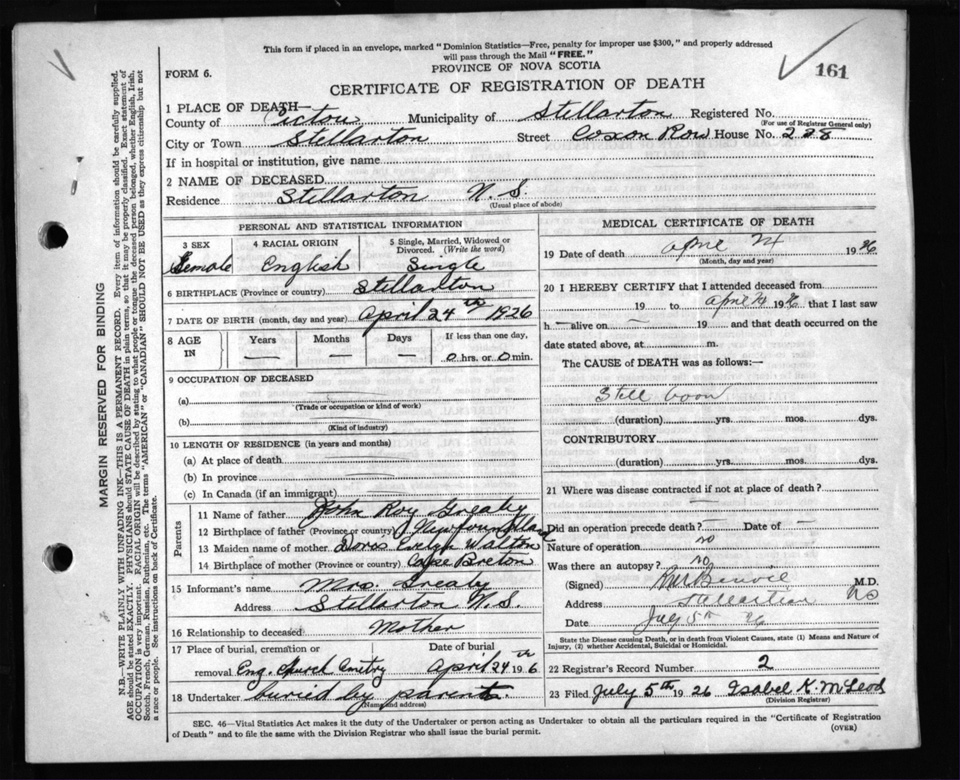 This form if placed in an envelope, marked "Dominion Statistics—Free, penalty for improper use $300," and properly addressed
will pass through the Mail "FREE."
PROVINCE OF NOVA SCOTIA
FORM 6.
161
CERTIFICATE OF REGISTRATION OF DEATH
1 PLACE OF DEATH—
County of Pictou Municipality of Stellarton Registered No.
(For use of Registrar General only)
City or Town Stellarton Street Coxson Row House No. 228
If in hospital or institution, give name
2 NAME OF DECEASED
Residence Stellarton N.S.
(Usual place of abode)
PERSONAL AND STATISTICAL INFORMATION
3 SEX 4 RACIAL ORIGIN 5 Single, Married, Widowed or Divorced. (Write the word)
Female English Single
6 BIRTHPLACE (Province or country) Stellarton
7 DATE OF BIRTH (month, day and year) April 24th 1926
8 AGE IN Years Months Days If less than one day,
0 hrs. or 0 min.
9 OCCUPATION OF DECEASED
(a)
(Trade or occupation or kind of work)
(b)
(Kind of industry)
10 LENGTH OF RESIDENCE (in years and months)
(a) At place of death
(b) In province
(c) In Canada (if an immigrant)
Parents
11 Name of father John Roy Greaby
12 Birthplace of father (Province or country) Newfoundland
13 Maiden name of mother Doris Evelyn Walton
14 Birthplace of mother (Province or country) Cape Breton
15 Informant's name Mrs. Greaby
Address Stellarton N.S.
16 Relationship to deceased Mother
17 Place of burial, cremation or removal Eng. Church Cmetry
Date of burial April 24th 1926
18 Undertaker buried by parents.
(Name and address)
MEDICAL CERTIFICATE OF DEATH
19 Date of death April 24 1926
(Month, day and year)
20 I HEREBY CERTIFY that I attended deceased from
19 to April 24 1926 that I last saw
h— alive on — 19 and that death occurred on the
date stated above, at m.
The CAUSE of DEATH was as follows:—
Still born
(duration) yrs. mos. dys.
CONTRIBUTORY
(duration) yrs. mos. dys.
21 Where was disease contracted if not at place of death?
Did an operation precede death? — Date of —
Nature of operation no
Was there an autopsy? no
(Signed) M.D.
Address Stellarton NS
Date July 5th 26
State the Disease causing Death, or in death from Violent Causes, state (1) Means and Nature of
Injury, (2) whether Accidental, Suicidal or Homicidal.
22 Registrar's Record Number 2
23 Filed July 5th 1926 Isabel K. McLeod
(Division Registrar)
SEC. 46—Vital Statistics Act makes it the duty of the Undertaker or person acting as Undertaker to obtain all the particulars required in the "Certificate of Registration
of Death" and to file the same with the Division Registrar who shall issue the burial permit.
(OVER)
MARGIN RESERVED FOR BINDING
N.B.—WRITE PLAINLY WITH UNFADING INK—THIS IS A PERMANENT RECORD. Every item of information should be carefully supplied.
AGE should be stated EXACTLY. PHYSICIANS should STATE CAUSE OF DEATH in plain terms, so that it may be properly classified. Exact statement of
OCCUPATION is very important. RACIAL ORIGIN will be described by stating to what people or tongue the deceased person belonged, whether English, Irish,
Scotch, French, German, Russian, Ruthenian, etc. The terms "AMERICAN" or "CANADIAN" SHOULD NOT BE USED as they express citizenship but not
a race or people. See instructions on back of Certificate.